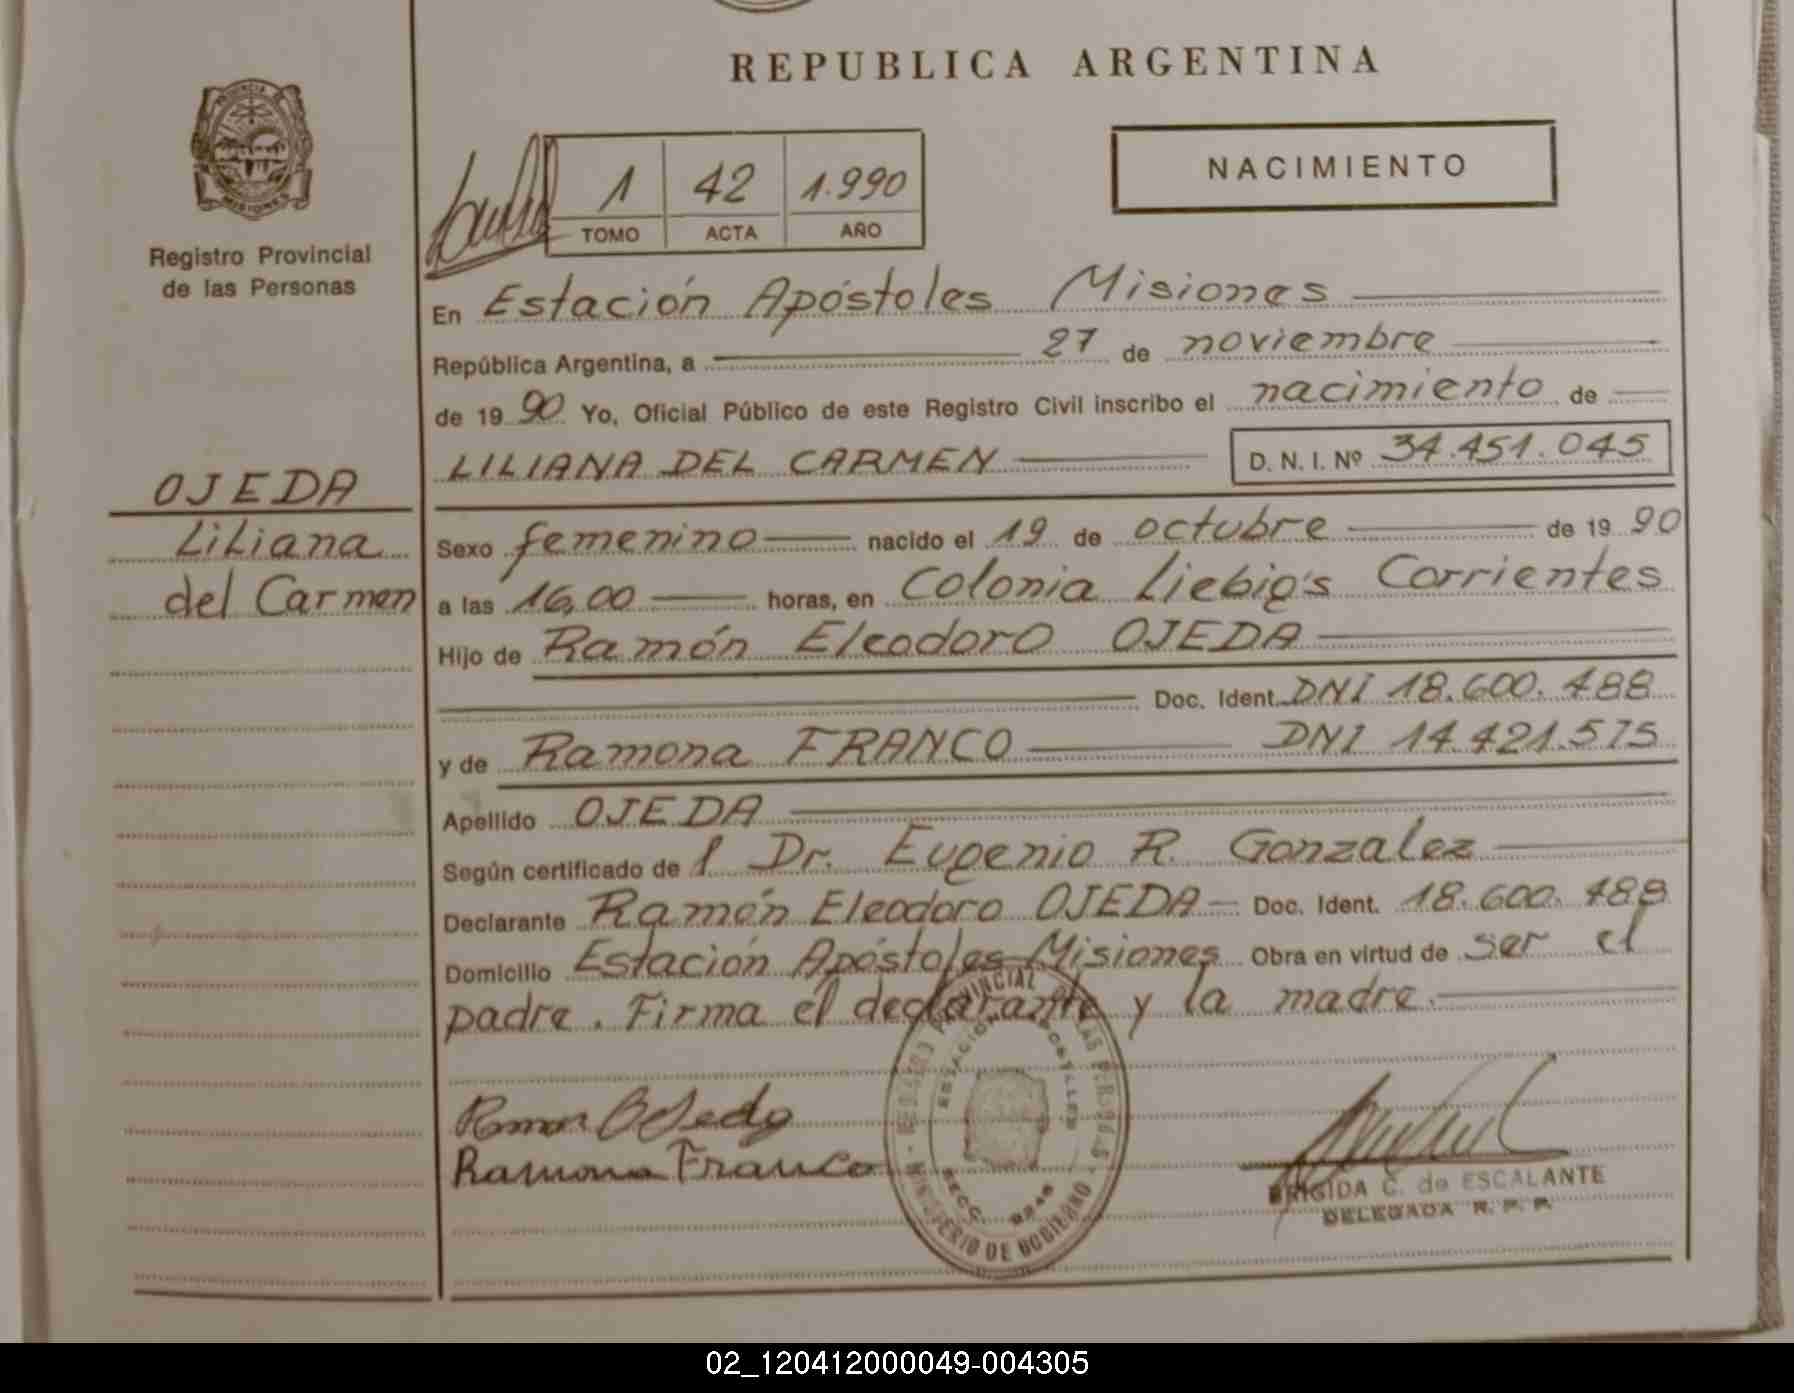 REPUBLICA ARGENTINA
PROVINCIA DE
MISIONES
Registro Provincial
de las Personas
1 42 1.990
TOMO ACTA AÑO
NACIMIENTO
En Estación Apóstoles Misiones
República Argentina, a 27 de noviembre
de 19 90 Yo, Oficial Público de este Registro Civil inscribo el nacimiento de
LILIANA DEL CARMEN D. N. I. Nº 34.451.045
OJEDA
Liliana
del Carmen
Sexo femenino nacido el 19 de octubre de 19 90
a las 16,00 horas, en Colonia Liebig's Corrientes
Hijo de Ramón Eleodoro OJEDA
Doc. Ident. DNI 18.600.488
y de Ramona FRANCO DNI 14.421.575
Apellido OJEDA
Según certificado de l Dr. Eugenio R. Gonzalez
Declarante Ramón Eleodoro OJEDA Doc. Ident. 18.600.488
Domicilio Estación Apóstoles Misiones Obra en virtud de ser el
padre. Firma el declarante y la madre.
Ramon Ojeda
Ramona Franco
REGISTRO PROVINCIAL DE LAS PERSONAS
ESTACION APOSTOLES
MINISTERIO DE GOBIERNO
BRIGIDA C. de ESCALANTE
DELEGADA R. P. P.
02_120412000049-004305